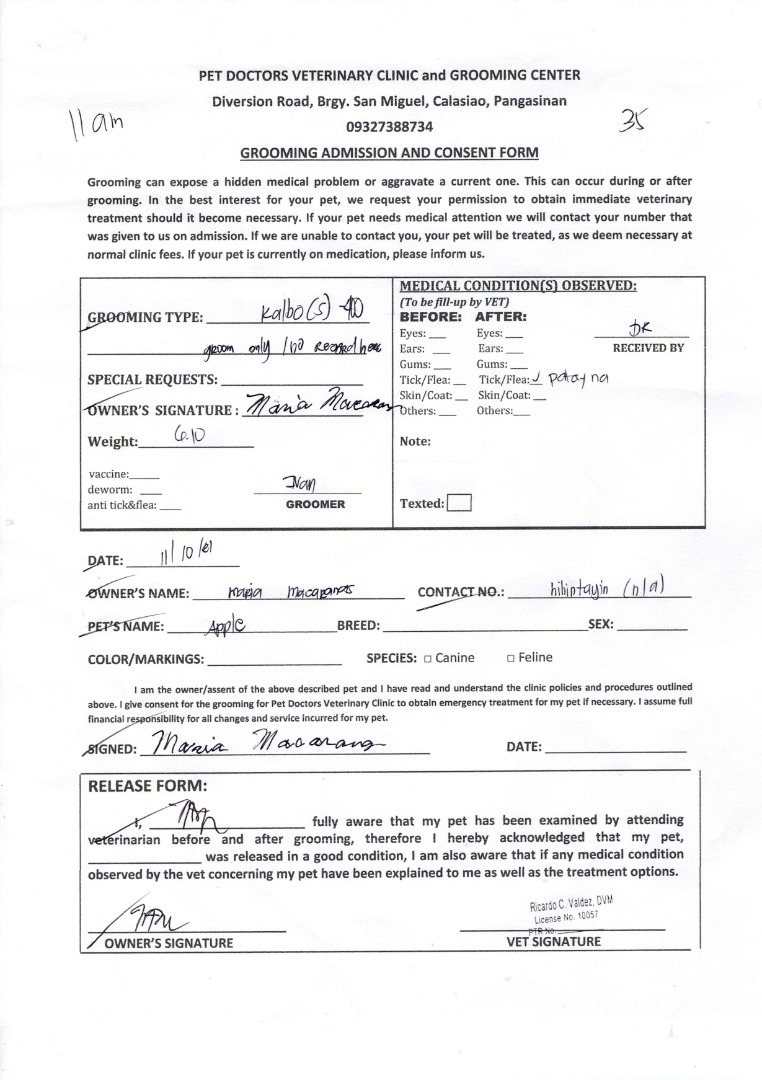 PET DOCTORS VETERINARY CLINIC and GROOMING CENTER
Diversion Road, Brgy. San Miguel, Calasiao, Pangasinan
11am
09327388734
35
GROOMING ADMISSION AND CONSENT FORM
Grooming can expose a hidden medical problem or aggravate a current one. This can occur during or after
grooming. In the best interest for your pet, we request your permission to obtain immediate veterinary
treatment should it become necessary. If your pet needs medical attention we will contact your number that
was given to us on admission. If we are unable to contact you, your pet will be treated, as we deem necessary at
normal clinic fees. If your pet is currently on medication, please inform us.
GROOMING TYPE: Kalbo (S)
groom only / no record here
SPECIAL REQUESTS:
OWNER'S SIGNATURE : Maria
Weight: 6.10
vaccine:
deworm:
anti tick&flea:
Ivan
GROOMER
MEDICAL CONDITION(S) OBSERVED:
(To be fill-up by VET)
BEFORE: AFTER:
Eyes: Eyes:
Ears: Ears:
Gums: Gums:
Tick/Flea: Tick/Flea: ✓ patay na
Skin/Coat: Skin/Coat:
Others: Others:
DR
RECEIVED BY
Note:
Texted:
DATE: 11/10/21
OWNER'S NAME: maria CONTACT NO.: hihiptayin (n/a)
PET'S NAME: Apple BREED: SEX:
COLOR/MARKINGS: SPECIES: □ Canine □ Feline
I am the owner/assent of the above described pet and I have read and understand the clinic policies and procedures outlined
above. I give consent for the grooming for Pet Doctors Veterinary Clinic to obtain emergency treatment for my pet if necessary. I assume full
financial responsibility for all changes and service incurred for my pet.
SIGNED: Maria Macarang DATE:
RELEASE FORM:
I, fully aware that my pet has been examined by attending
veterinarian before and after grooming, therefore I hereby acknowledged that my pet,
was released in a good condition, I am also aware that if any medical condition
observed by the vet concerning my pet have been explained to me as well as the treatment options.
Ricardo C. Valdez, DVM
License No. 10057
PTR No.
OWNER'S SIGNATURE
VET SIGNATURE